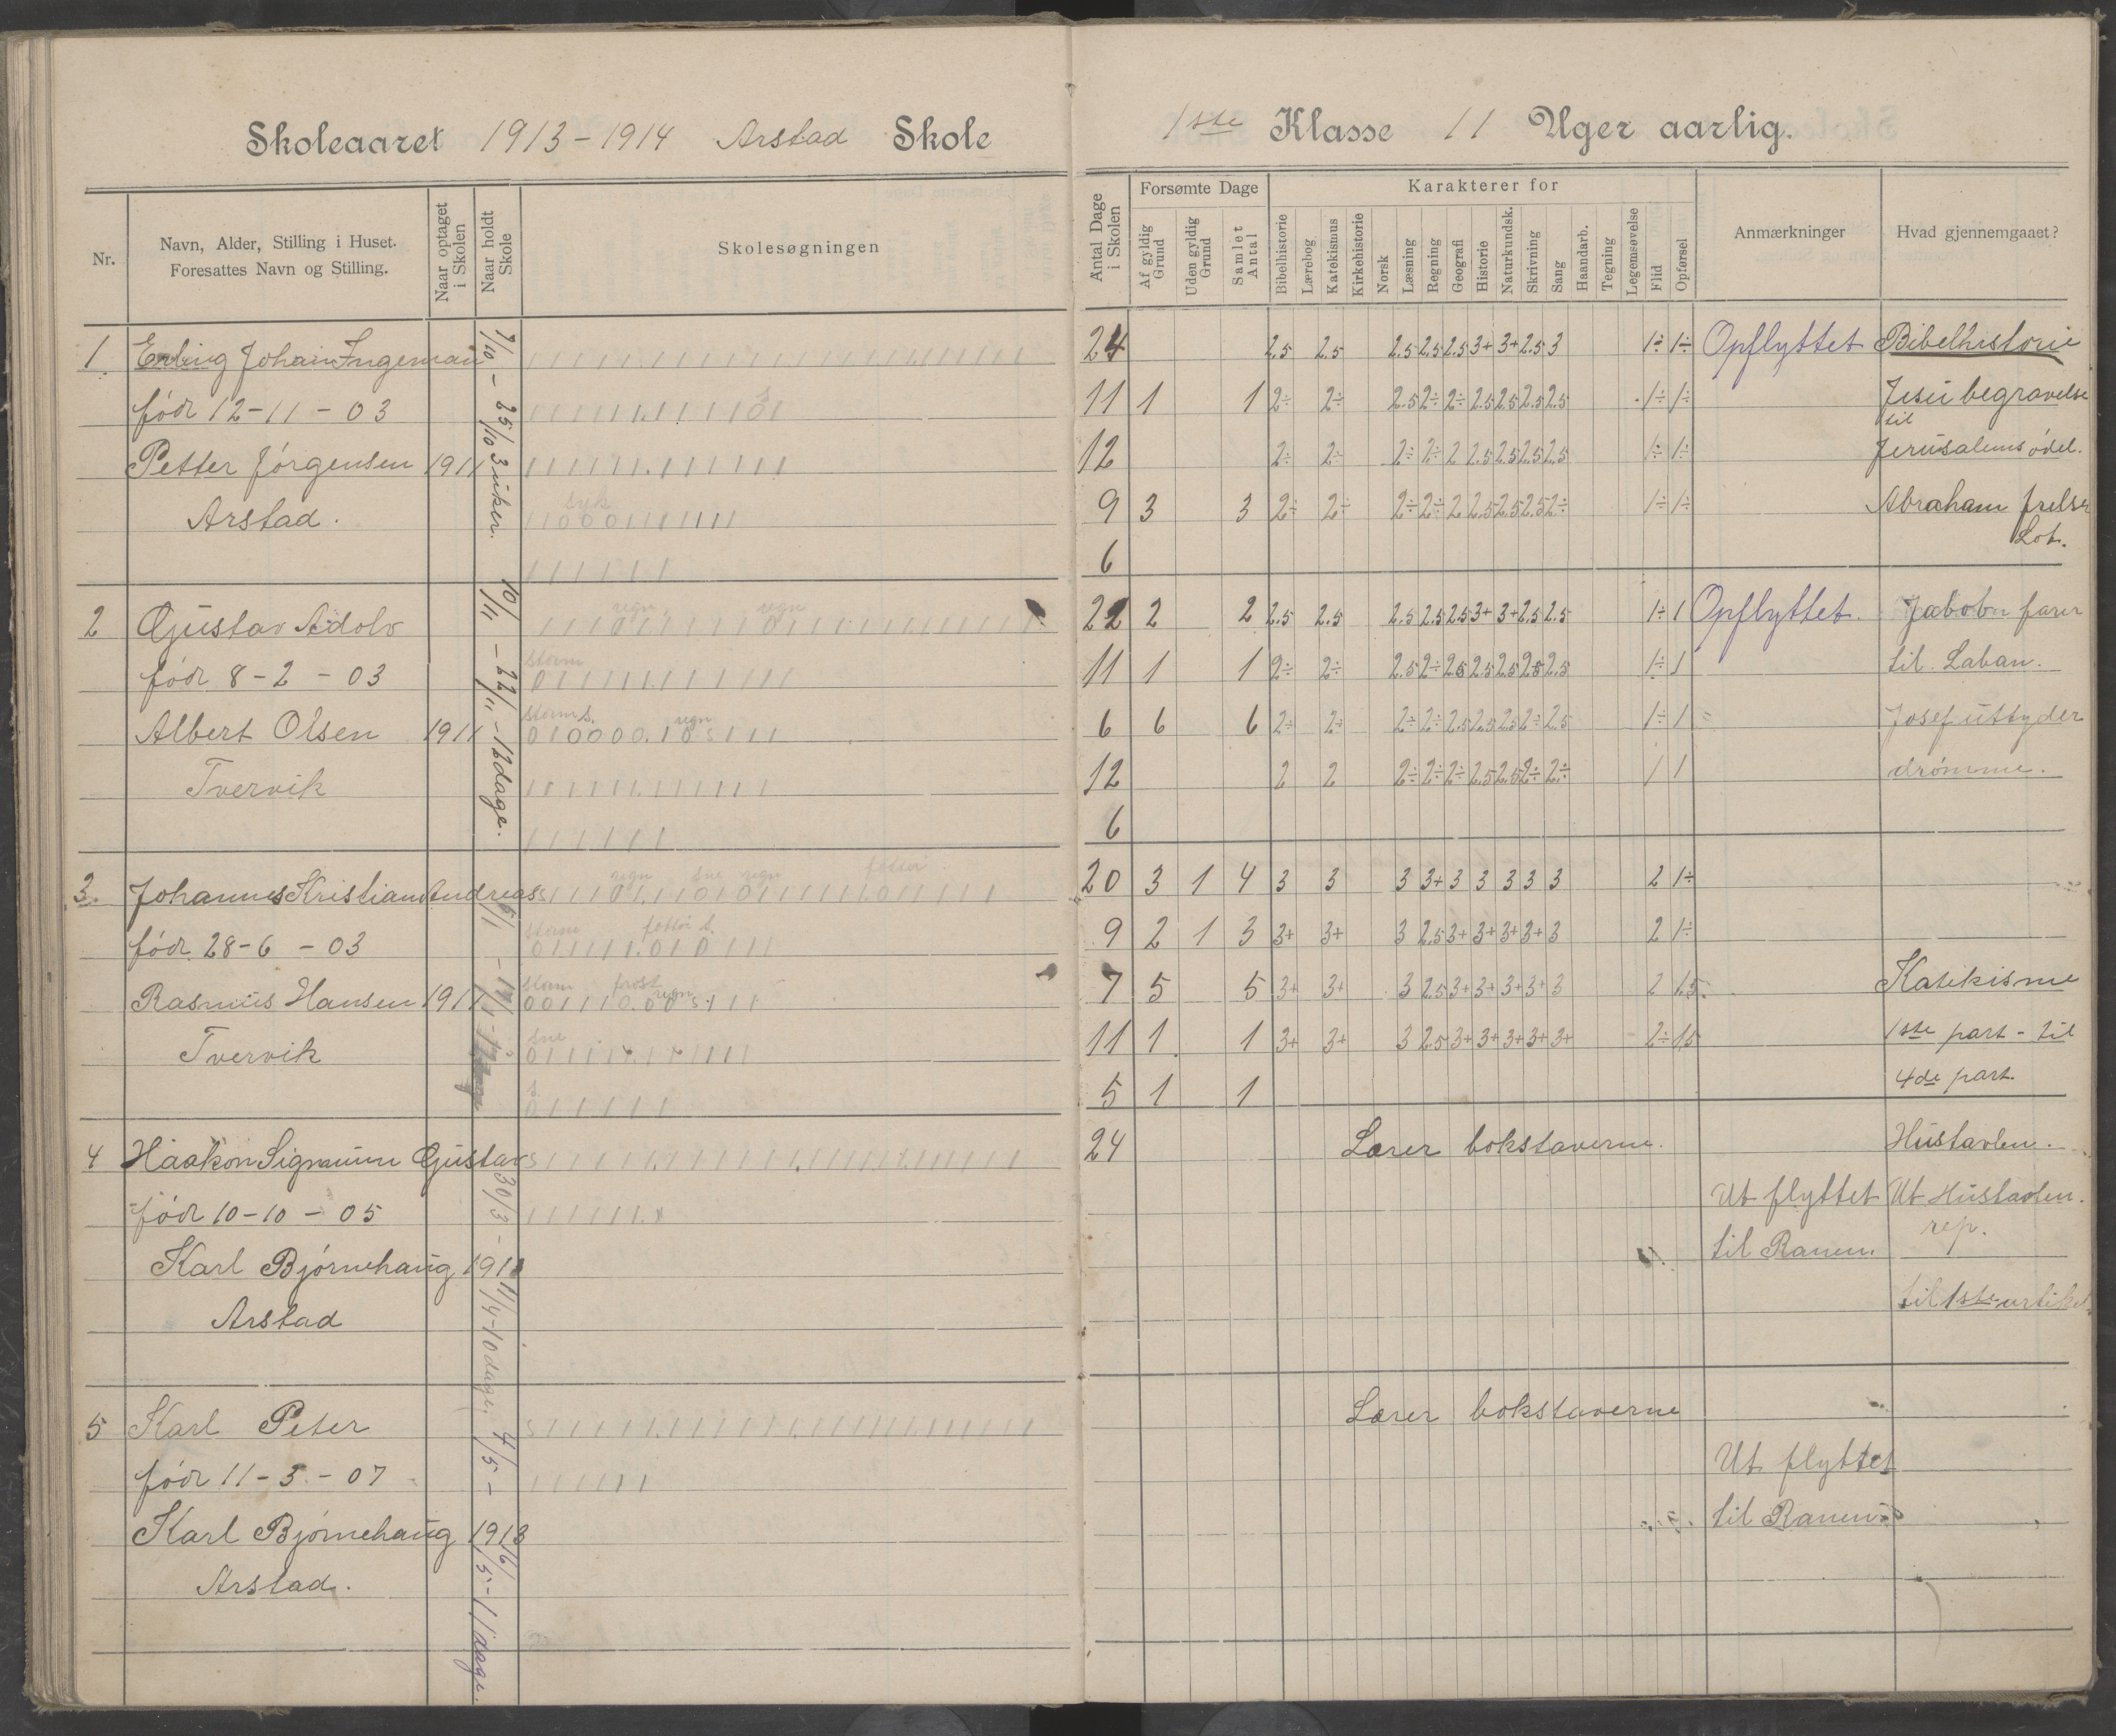 Skoleaaret 1913-1914 Arstad Skole
Nr.
Navn, Alder, Stilling i Huset.
Foresattes Navn og Stilling.
Naar optaget i Skolen
Naar holdt Skole
Skolesøgningen
1 Erling Johan Ingeman
født 12-11-03
Petter Jørgensen 1911
Arstad.
7/10 - 25/10 3 uker.
syk
2 Gustav Adolv
født 8-2-03
Albert Olsen 1911
Tvervik
10/11 - 22/11 - 12 dage.
regn regn
storm
storm s. regn
3. Johannes Kristian Andreas
født 28-6-03
Rasmus Hansen 1911
Tvervik
regn sne regn
storm
storm frost regn
sne
4 Haakon Sigmunn Gustav
født 10-10-05
Karl Bjørnehaug 1913
Arstad
30/3 - 11/4 - 10 dage.
5 Karl Peter
født 11-3-07
Karl Bjørnehaug 1913
Arstad.
4/5 - 16/5 - 11 dage.
1ste Klasse 11 Uger aarlig.
Antal Dage i Skolen
Forsømte Dage
Af gyldig Grund
Uden gyldig Grund
Samlet Antal
Karakterer for
Bibelhistorie
Lærebog
Katekismus
Kirkehistorie
Norsk
Læsning
Regning
Geografi
Historie
Naturkundsk.
Skrivning
Sang
Haandarb.
Tegning
Legemsøvelse
Flid
Opførsel
Anmærkninger
Hvad gjennemgaaet?
24 2.5 2.5 2.5 2.5 2.5 3+ 3+ 2.5 3 1÷ 1÷ Opflyttet Bibelhistorie
11 1 1 2÷ 2÷ 2.5 2÷ 2÷ 2.5 2.5 2.5 2.5 1÷ 1÷ Jesu begravelse
til
12 2÷ 2÷ 2÷ 2÷ 2 2.5 2.5 2.5 2.5 1÷ 1÷ Jerusalems ødel.
9 3 3 2÷ 2÷ 2÷ 2÷ 2 2.5 2.5 2.5 2÷ 1÷ 1÷ Abraham frelser
Lot.
6
22 2 2 2.5 2.5 2.5 2.5 2.5 3+ 3+ 2.5 2.5 1÷ 1 Opflyttet. Jakob farer
11 1 1 2÷ 2÷ 2.5 2÷ 2.5 2.5 2.5 2.5 2.5 1÷ 1 til Laban.
6 6 6 2÷ 2÷ 2÷ 2÷ 2.5 2.5 2.5 2÷ 2.5 1÷ 1 Josef uttyder
12 2 2 2÷ 2÷ 2÷ 2.5 2.5 2÷ 2÷ 1 1 drømme.
6
20 3 1 4 3 3 3 3+ 3 3 3 3 3 2 1÷
9 2 1 3 3+ 3+ 3 2.5 3+ 3+ 3+ 3+ 3 2 1÷
7 5 5 3+ 3+ 3 2.5 3+ 3+ 3+ 3+ 3 2 1.5 Katekisme
11 1 1 3+ 3+ 3 2.5 3+ 3+ 3+ 3+ 3+ 2÷ 1.5 1ste part - til
5 1 1 4de part.
24 Lærer bokstaverne. Hustavlen.
Ut flyttet Ut Hustavlen.
til Ranen. rep.
til 1ste artikel
Lærer bokstaverne
Ut flyttet
til Ranen